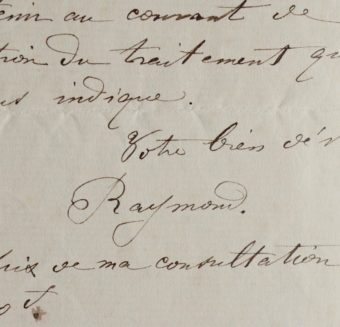 tenir au courant de
tion du traitement qu
us indique.
Votre bien dé
Raymond.
prix de ma consultation